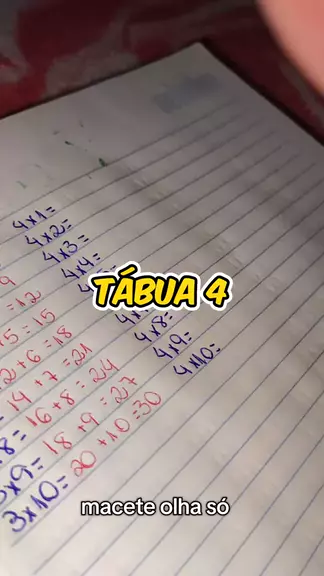 4x1=
4x2=
4x3=
4x4=
TÁBUA 4
4x8=
4x9=
4x10=
9
=12
5=15
2+6=18
=14+7=21
8=16+8=24
x9=18+9=27
3x10=20+10=30
macete olha só